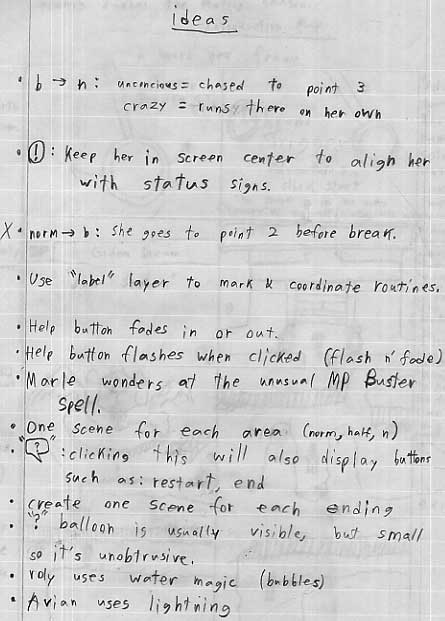 ideas
• b → n: unconcious = chased to point 3
crazy = runs there on her own
• (!): Keep her in screen center to aligh her
with status signs.
X • norm → b: she goes to point 2 before break.
• Use "label" layer to mark & coordinate routines.
• Help button fades in or out.
• Help button flashes when clicked (flash n' fade)
• Marle wonders at the unusual MP Buster
spell.
• One scene for each area (norm, half, n)
• "?" : clicking this will also display buttons
such as: restart, end
• create one scene for each ending
• "?" balloon is usually visible, but small
so it's unobtrusive.
• roly uses water magic (bubbles)
• Avian uses lightning